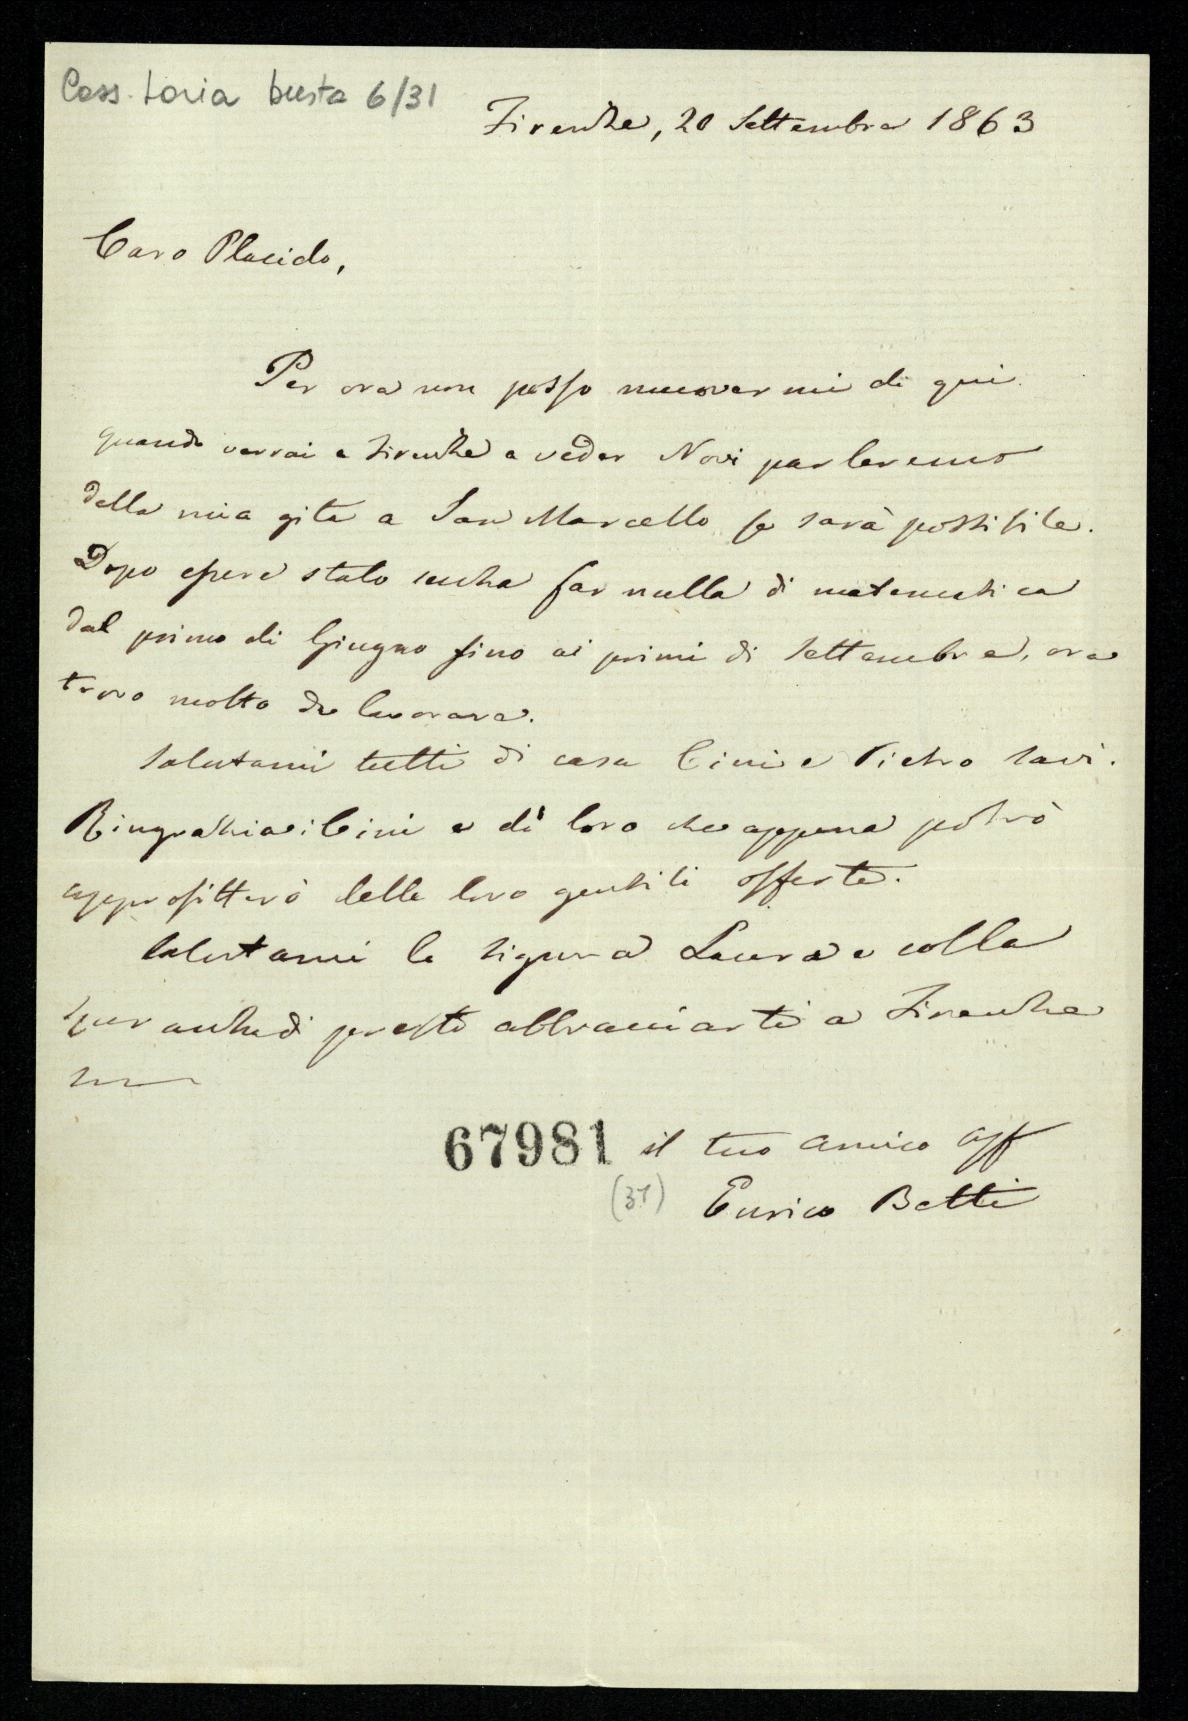 Cass. Loria busta 6/31
Firenze, 20 Settembre 1863
Caro Placido,
Per ora non posso muovermi di qui
quando verrai a Firenze a veder Novi parleremo
della mia gita a San Marcello se sarà possibile.
Dopo essere stato senza far nulla di matematica
dal primo di Giugno fino ai primi di Settembre, ora
trovo molto da lavorare.
Salutami tutti di casa Cini e Pietro Savi.
Ringrazia i Cini e di' loro che appena potrò
approfitterò delle loro gentili offerte.
Salutami la Signora Laura e colla
speranza di presto abbracciarti a Firenze
sono
67981 il tuo amico aff
(31) Enrico Betti